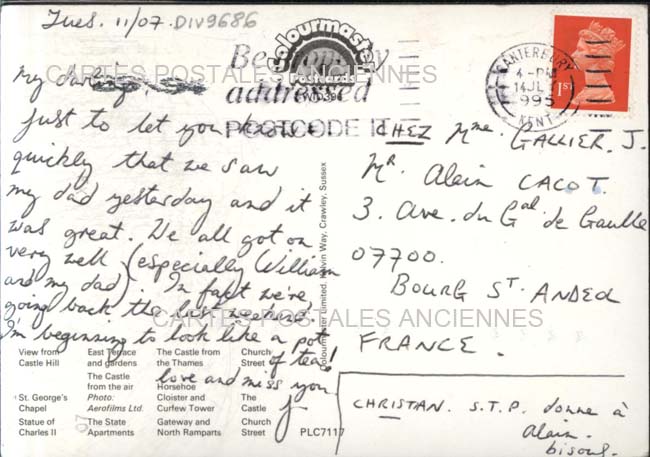 Tues. 11/07. DIV9686
My darling
Just to let you know
quickly that we saw
my dad yesterday and it
was great. We all got on
very well (especially William
and my dad). In fact we're
going back the last weekend.
I'm beginning to look like a pot
of tea!
love and miss you
J
Colourmaster
Postcards
Be
addressed
POSTCODE IT
CANTERBURY
4-PM
14 JLY
1995
KENT
1ST
CHEZ Mme. GALLIER. J.
Mr. Alain CACOT.
3. Ave. du Gal de Gaulle
07700.
BOURG ST. ANDEOL
FRANCE.
CHRISTAN. S.T.P. donne à
Alain.
bisous.
Colourmaster Limited, Kelvin Way, Crawley, Sussex
View from
Castle Hill
East Terrace
and gardens
The Castle from
the Thames
Church
Street
St. George's
Chapel
The Castle
from the air
Photo:
Aerofilms Ltd.
Horsehoe
Cloister and
Curfew Tower
The
Castle
Statue of
Charles II
The State
Apartments
Gateway and
North Ramparts
Church
Street
PLC7117
07
CARTES POSTALES ANCIENNES
CARTES POSTALES ANCIENNES